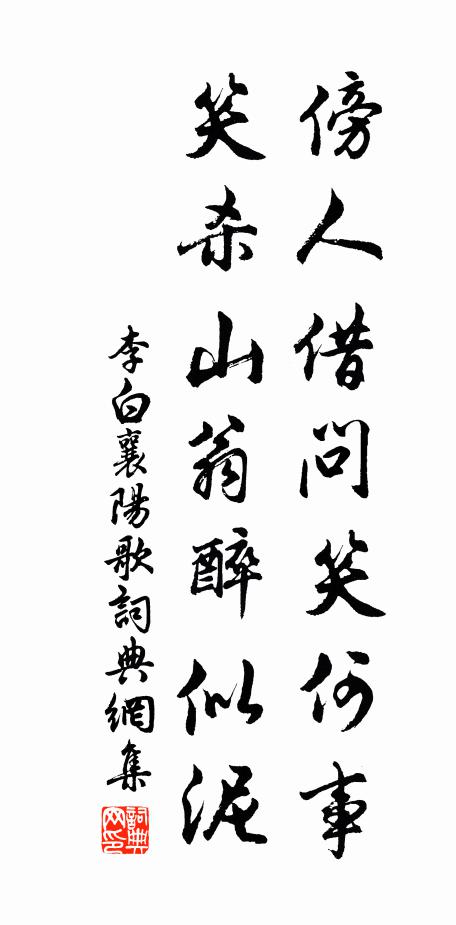 傍人借问笑何事
笑杀山翁醉似泥
李白襄陽歌詞典網集
詞典网印